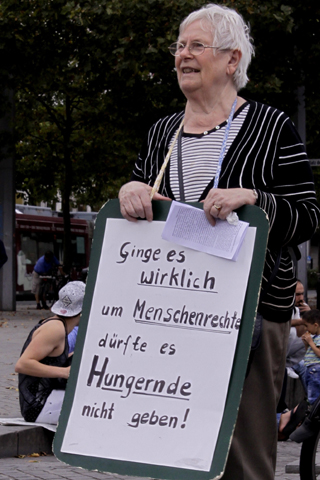 Ginge es
wirklich
um Menschenrechte
dürfte es
Hungernde
nicht geben!